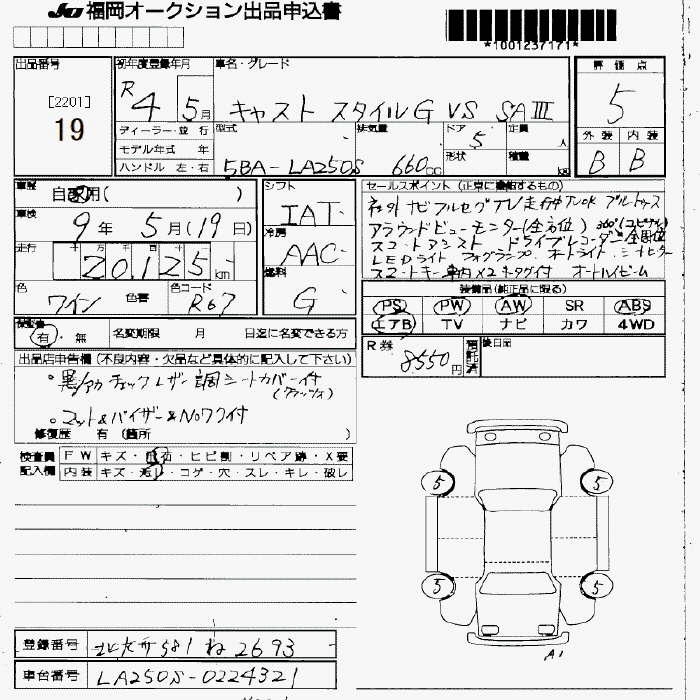 JU 福岡オークション出品申込書
*1001237171*
出品番号
[2201]
19
初年度登録年月
R4 5月
車名・グレード
キャスト スタイルG VS SAⅢ
評価点
5
外装 内装
B B
ディーラー・並行
モデル年式 年
ハンドル 左・右
型式
5BA-LA250S
排気量
660cc
ドア
5
形状
定員
人
積量
kg
車歴
自家用( )
車検
9年 5月(19日)
走行
十 万 千 百 十
20,125km
色
ワイン
色替
色コード
R67
シフト
IAT
冷房
AAC
燃料
G
セールスポイント (正常に機能するもの)
社外ナビ フルセグTV 走行中TVOK ブルートゥース
アラウンドビューモニター(全方位)
スマートアシスト ドライブレコーダー
LEDライト フォグランプ オートライト シートヒーター
スマートキー オートハイビーム
装備品(純正品に限る)
PS PW AW SR ABS
エアB TV ナビ カワ 4WD
R券
8550円
預託済
後日品
保証書
有・無
名変期限 月 日迄に名変できる方
出品店申告欄 (不良内容・欠品など具体的に記入して下さい)
・黒/赤チェックレザー調シートカバー付
(クラッツィオ)
・マット&バイザー&Noワク付
修復歴 有 (箇所 )
検査員記入欄
FW キズ・飛石・ヒビ割・リペア跡・X要
内装 キズ・汚レ・コゲ・穴・スレ・キレ・破レ
5 5
5 5
A1
登録番号
北九州 581 ね 2693
車台番号
LA250S-0224321